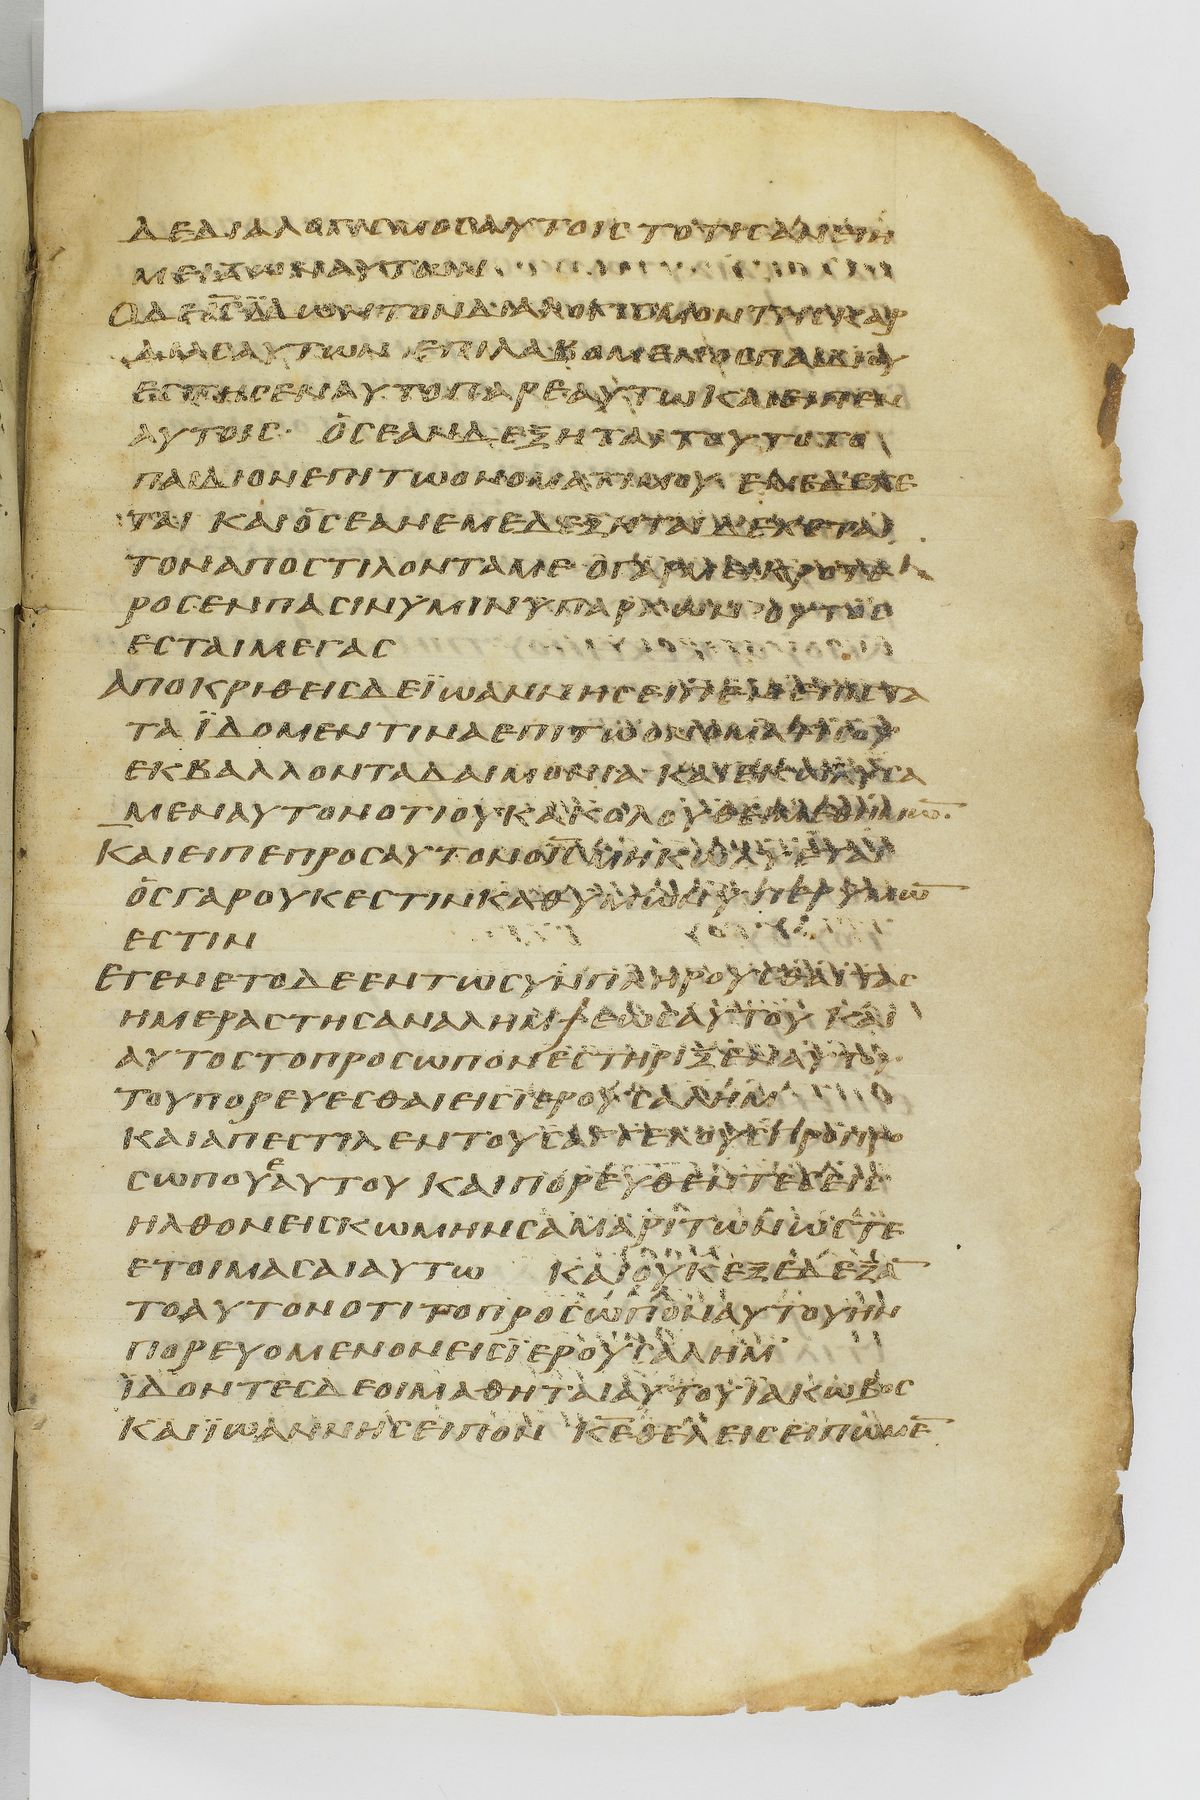 ΔΕΔΙΑΛΟΓΙΣΜΟΣΑΥΤΟΙΣΤΟΤΙΣΑΝΕΙΗ
ΜΕΙΖΩΝΑΥΤΩΝ
ΔΕΙΣΙΔΩΝΤΟΝΔΙΑΛΟΓΙΣΜΟΝΤΗΣΚΑΡ
ΔΙΑΣΑΥΤΩΝ ΕΠΙΛΑΒΟΜΕΝΟΣΠΑΙΔΙΟΥ
ΕΣΤΗΣΕΝΑΥΤΟΠΑΡΕΑΥΤΩΚΑΙΕΙΠΕΝ
ΑΥΤΟΙΣ· ΟΣΕΑΝΔΕΞΗΤΑΙΤΟΥΤΟΤΟ
ΠΑΙΔΙΟΝΕΠΙΤΩΟΝΟΜΑΤΙΜΟΥ ΕΜΕΔΕΧΕ
ΤΑΙ ΚΑΙΟΣΕΑΝΕΜΕΔΕΞΗΤΑΙΔΕΧΕΤΑΙ
ΤΟΝΑΠΟΣΤΙΛΟΝΤΑΜΕ· ΟΓΑΡΜΕΙΚΡΟΤΕ
ΡΟΣΕΝΠΑΣΙΝΥΜΙΝΥΠΑΡΧΩΝ ΟΥΤΟΣ
ΕΣΤΑΙΜΕΓΑΣ
ΑΠΟΚΡΙΘΕΙΣΔΕΪΩΑΝΝΗΣΕΙΠΕΝΕΠΙΣΤΑ
ΤΑΪΔΟΜΕΝΤΙΝΑΕΠΙΤΩΟΝΟΜΑΤΙΣΟΥ
ΕΚΒΑΛΛΟΝΤΑΔΑΙΜΟΝΙΑ ΚΑΙΕΚΩΛΥΣΑ
ΜΕΝΑΥΤΟΝΟΤΙΟΥΚΑΚΟΛΟΥΘΕΙΜΕΘΗΜΩ̅
ΚΑΙΕΙΠΕΝΠΡΟΣΑΥΤΟΝΟΙ̅Σ̅ΜΗΚΩΛΥΕΤΑΙ
ΟΣΓΑΡΟΥΚΕΣΤΙΝΚΑΘΥΜΩΝΥΠΕΡΥΜΩ̅
ΕΣΤΙΝ
ΕΓΕΝΕΤΟΔΕΕΝΤΩΣΥΝΠΛΗΡΟΥΣΘΑΙΤΑΣ
ΗΜΕΡΑΣΤΗΣΑΝΑΛΗΜΨΕΩΣΑΥΤΟΥ ΚΑΙ
ΑΥΤΟΣΤΟΠΡΟΣΩΠΟΝΕΣΤΗΡΙΞΕΝΑΥΤΟΥ
ΤΟΥΠΟΡΕΥΕΣΘΑΙΕΙΣΪΕΡΟΥΣΑΛΗΜ
ΚΑΙΑΠΕΣΤΙΛΕΝΤΟΥΣΑΓΓΕΛΟΥΣΠΡΟΠΡΟ
ΣΩΠΟΥΑΥΤΟΥ ΚΑΙΠΟΡΕΥΘΕΝΤΕΣΕΙΣ
ΗΛΘΟΝΕΙΣΚΩΜΗΝΣΑΜΑΡΙΤΩΝΩΣΤΕ
ΕΤΟΙΜΑΣΑΙΑΥΤΩ ΚΑΙΟΥΚΕΞΕΔΕΞΑ̅
ΤΟΑΥΤΟΝΟΤΙΤΟΠΡΟΣΩΠΟΝΑΥΤΟΥΗΝ
ΠΟΡΕΥΟΜΕΝΟΝΕΙΣΪΕΡΟΥΣΑΛΗΜ
ΪΔΟΝΤΕΣΔΕΟΙΜΑΘΗΤΑΙΑΥΤΟΥΙΑΚΩΒΟΣ
ΚΑΙΪΩΑΝΝΗΣΕΙΠΟΝ Κ̅Ε̅ΘΕΛΕΙΣΕΙΠΩΜΕ̅